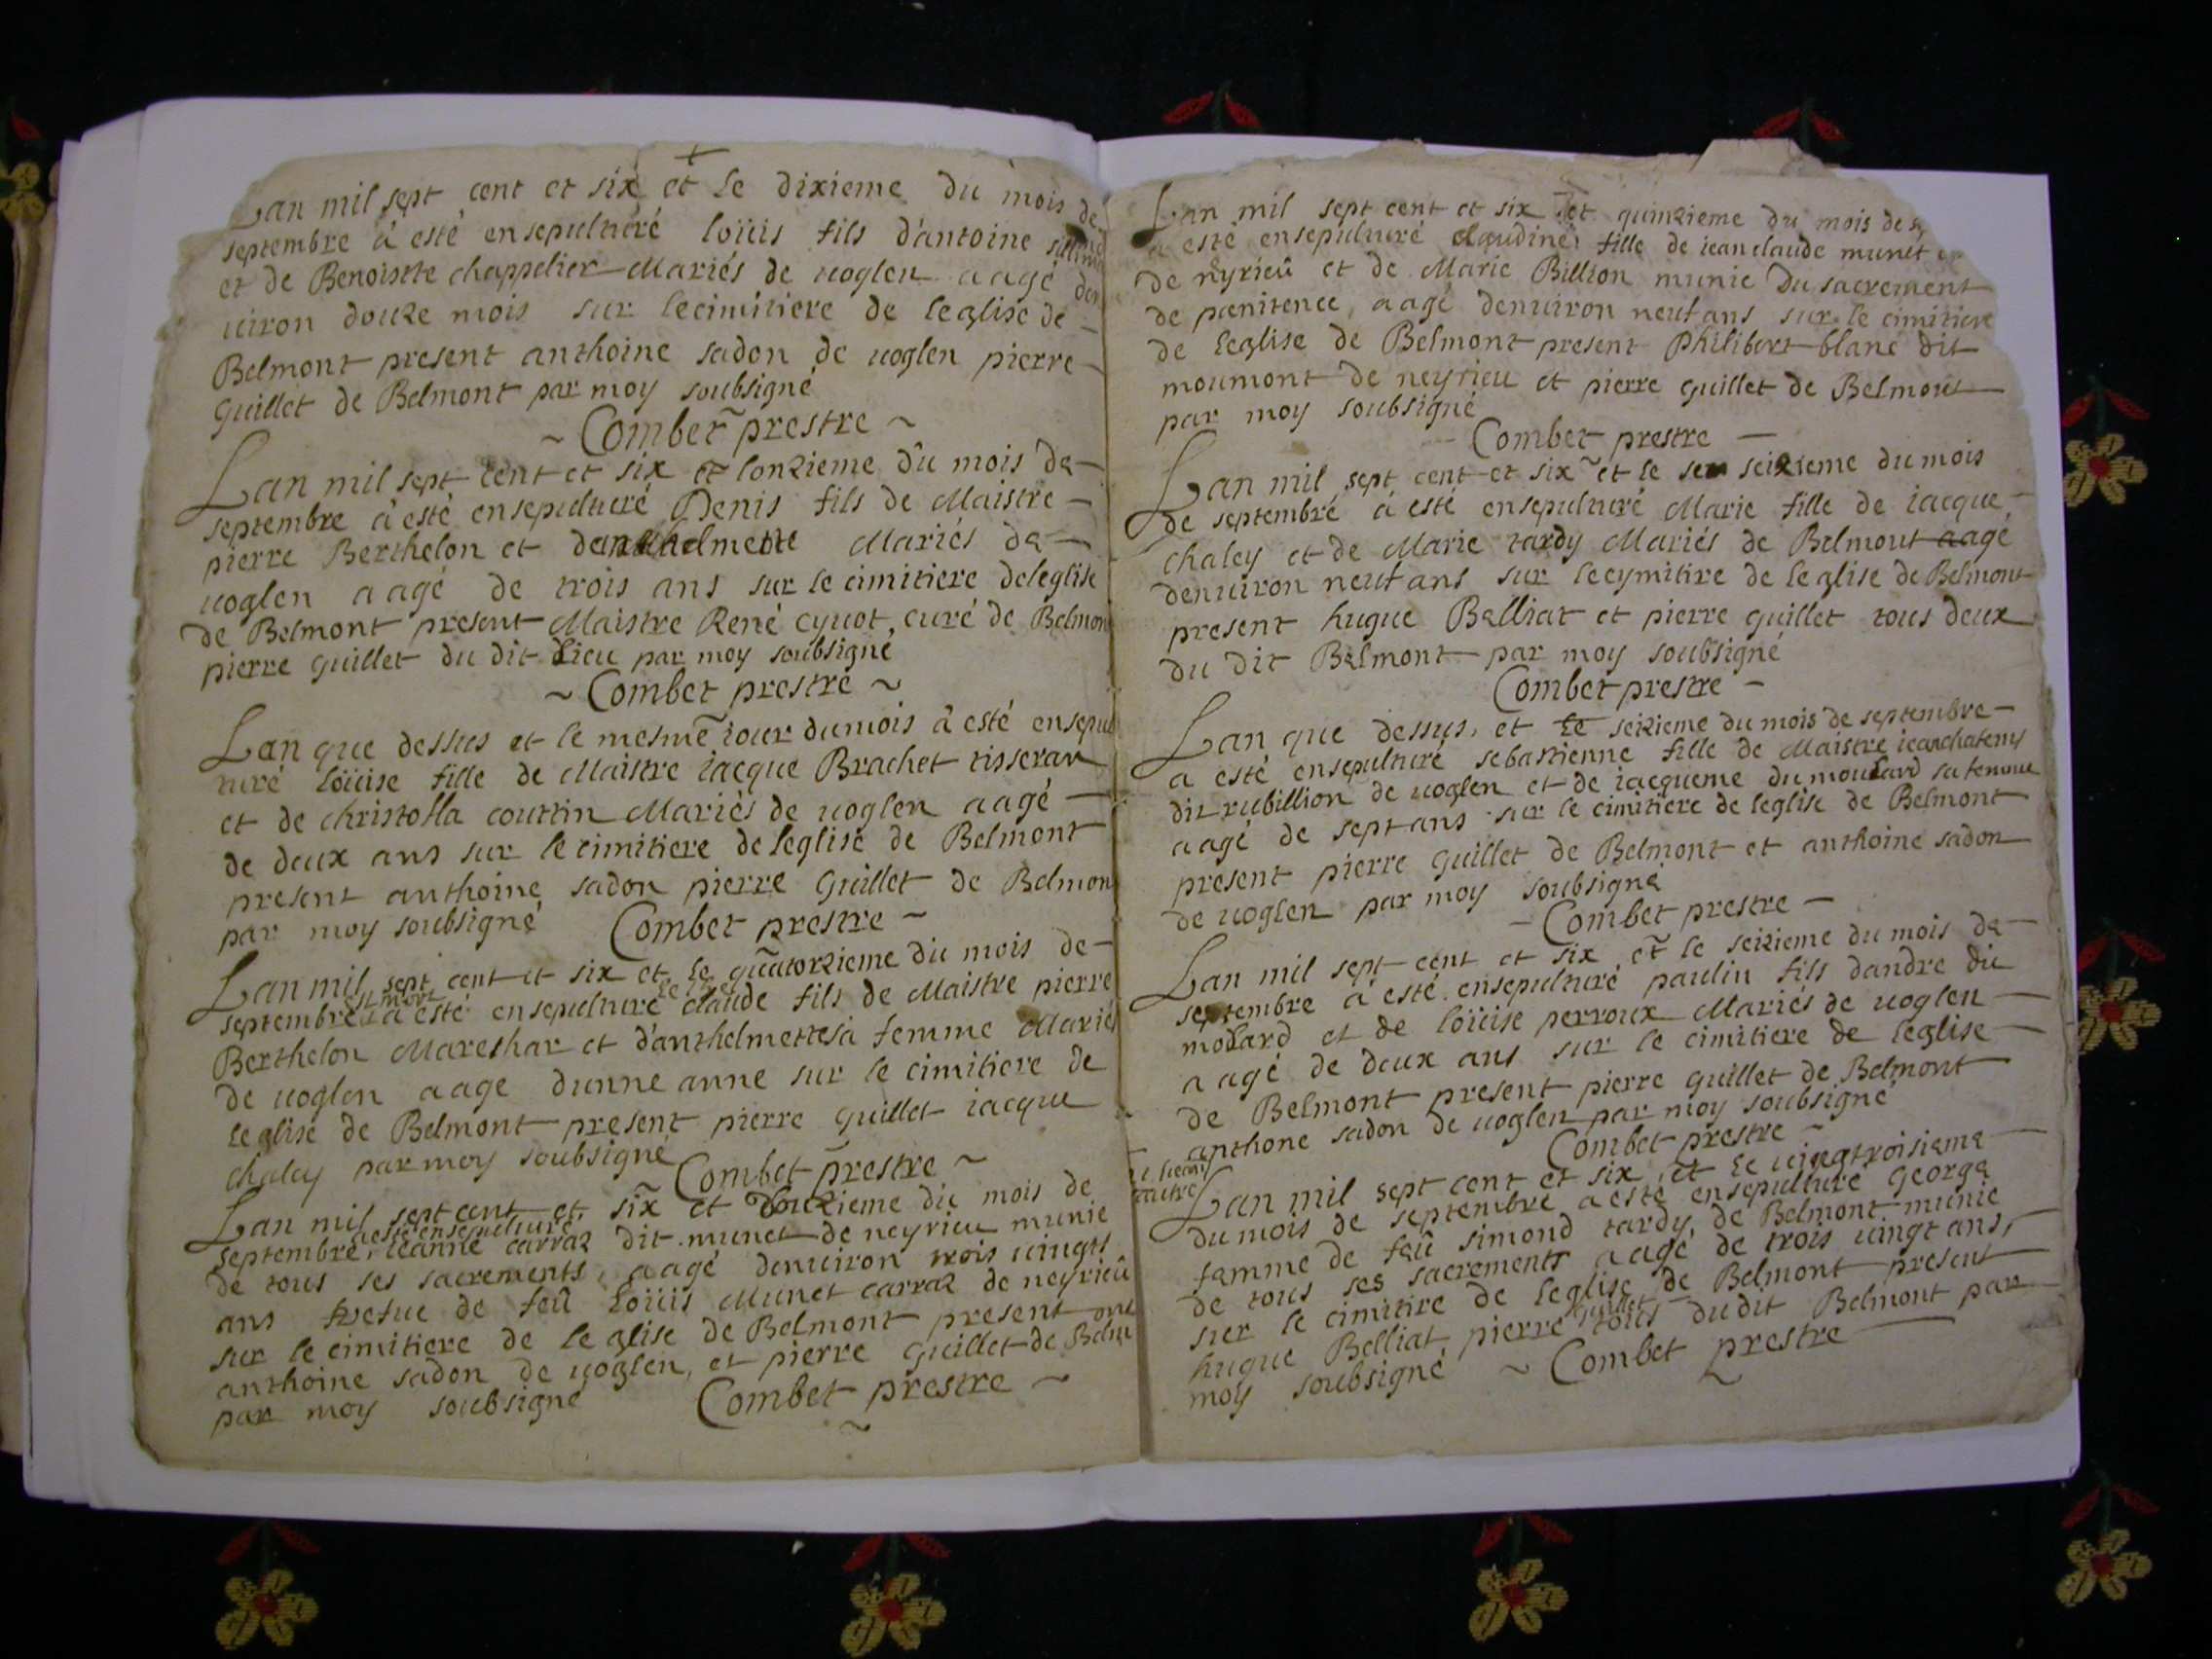 Lan mil sept cent et six et le dixieme du mois de
septembre à esté ensepulturé loüis fils d'antoine
et de Benoiste chappelier Mariés de uoglen aagé den
uiron douze mois sur lecimitiere de leglise de
Belmont present anthoine sadon de uoglen pierre
guillet de Belmont par moy soubsigné
~ Combet prestre ~
Lan mil sept cent et six et lonzieme du mois de
septembre à esté ensepulturé Denis fils de Maistre
pierre Berthelon et danthelmette Mariés de
uoglen aagé de trois ans sur le cimitiere deleglise
de Belmont present Maistre René cyuot, curé de Belmon
pierre guillet du dit Lieu par moy soubsigné
~ Combet prestre ~
Lan que dessus et le mesme iour dumois à esté ensepul
turé loüise fille de Maistre iacque Brachet tisseran
et de christofla couttin Mariés de uoglen aagé
de deux ans sur le cimitiere deleglise de Belmont
present anthoine sadon pierre guillet de Belmon
par moy soubsigné Combet prestre ~
Lan mil sept cent et six et le quatorzieme du mois de
septembre est mort à esté ensepulturé claude fils de Maistre pierre
Berthelon Mareshar et d'anthelmette sa femme Mariés
de uoglen aage dunne anne sur le cimitiere de
leglise de Belmont present pierre guillet iacque
chaley par moy soubsigné
Combet prestre ~
Lan mil sept cent et six et douzieme du mois de
septembre, a esté ensepulturé ieanne carraz dit munet de neyrieu munie
de tous ses sacrements, aagé denuiron trois uingts
ans uefue de feû Loüis Munet carraz de neyrieû
sur le cimitiere de le glise de Belmont present
anthoine sadon de uoglen, et pierre guillet de Belm
par moy soubsigné Combet prestre ~
Lan mil sept cent et six et quinzieme du mois de
a esté ensepulturé claudine fille de iean claude munet
de neyrieû et de Marie Billion munie du sacrement
de pœnitence, aagé denuiron neuf ans sur le cimitiere
de leglise de Belmont present Philibert blanc dit
moumont de neyrieu et pierre guillet de Belmont
par moy soubsigné
Combet prestre
Lan mil sept cent et six et le seizieme du mois
de septembre à esté ensepulturé Marie fille de iacque
chaley et de Marie tardy Mariés de Belmont aagé
denuiron neuf ans sur lecymitire de leglise de Belmont
present hugue Belliat et pierre guillet tous deux
du dit Belmont par moy soubsigné
Combet prestre ~
Lan que dessus, et le seizieme du mois de septembre
a esté ensepulturé sebastienne fille de Maistre iean
dit rubillion de uoglen et de iacqueme du moulard sa femme
aagé de sept ans sur le cimitiere de leglise de Belmont
present pierre guillet de Belmont et anthoine sadon
de uoglen par moy soubsigné
Combet prestre
Lan mil sept cent et six et le seizieme du mois de
septembre à esté ensepulturé paulin fils dandre du
molard et de loüise perroux Mariés de uoglen
aagé de deux ans sur le cimitiere de leglise
de Belmont present pierre guillet de Belmont
anthone sadon de uoglen par moy soubsigné
Combet prestre ~
Lan mil sept cent et six, et le uingtroisieme
du mois de septembre a esté ensepulturé George
famme de feû simond tardy de Belmont munie
de tous ses sacrements aagé de trois uingt ans,
sur le cimitire de leglise de Belmont present
hugue Belliat pierre guillet tous dudit Belmont par
moy soubsigné ~ Combet prestre